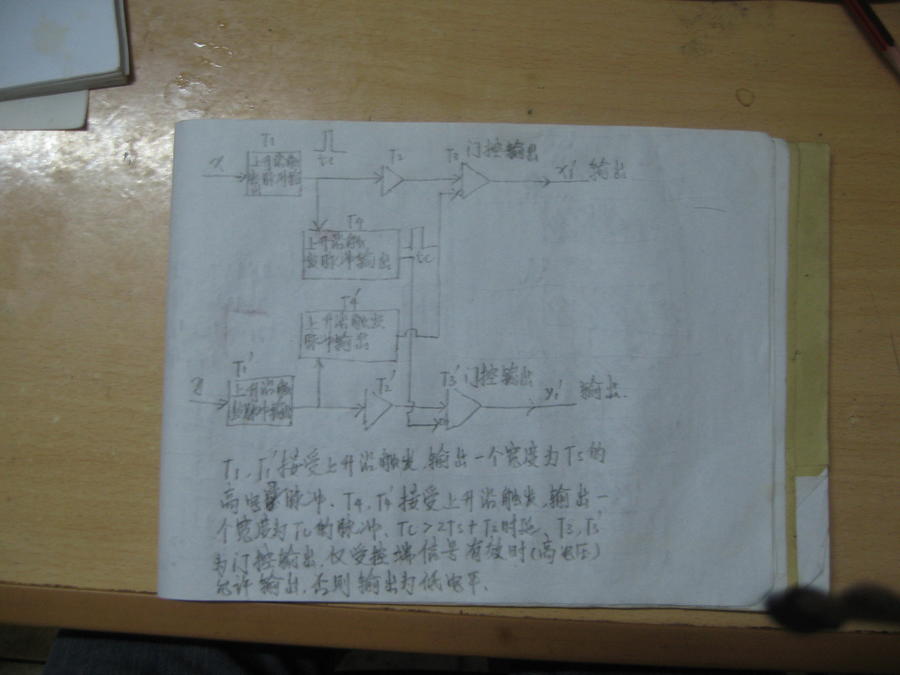 T₁
T₂
T₃ 门控输出
x
上升沿触
发脉冲输
出
ts
x₁' 输出
T₄
上升沿触
发脉冲输出
tc
T₄'
上升沿触发
脉冲输出
T₁'
上升沿触
发脉冲输出
T₂'
T₃' 门控输出
y₁' 输出.
T₁, T₁'接受上升沿触发, 输出一个宽度为Ts的
高电平脉冲. T₄, T₄'接受上升沿触发, 输出一
个宽度为Tc的脉冲, Tc>2Ts+T₂时延, T₃, T₃'
为门控输出, 仅受控端信号有效时(高电压)
允许输出, 否则输出为低电平.